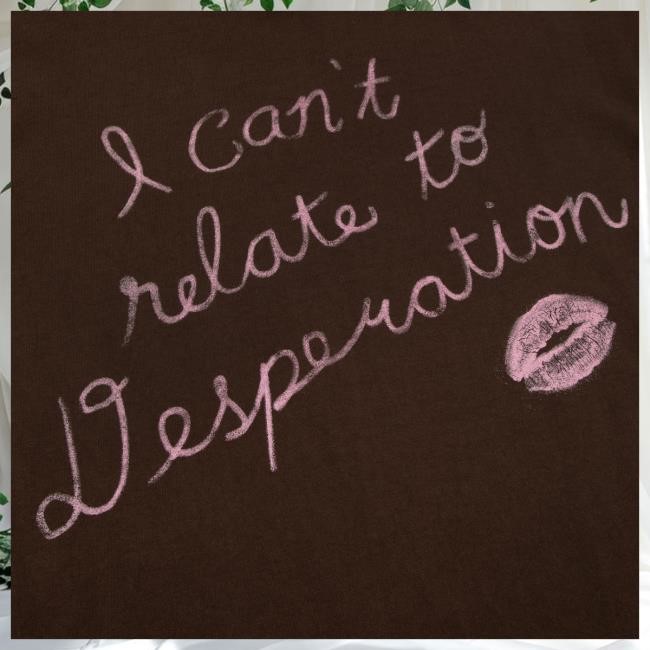 I can't
relate to
Desperation